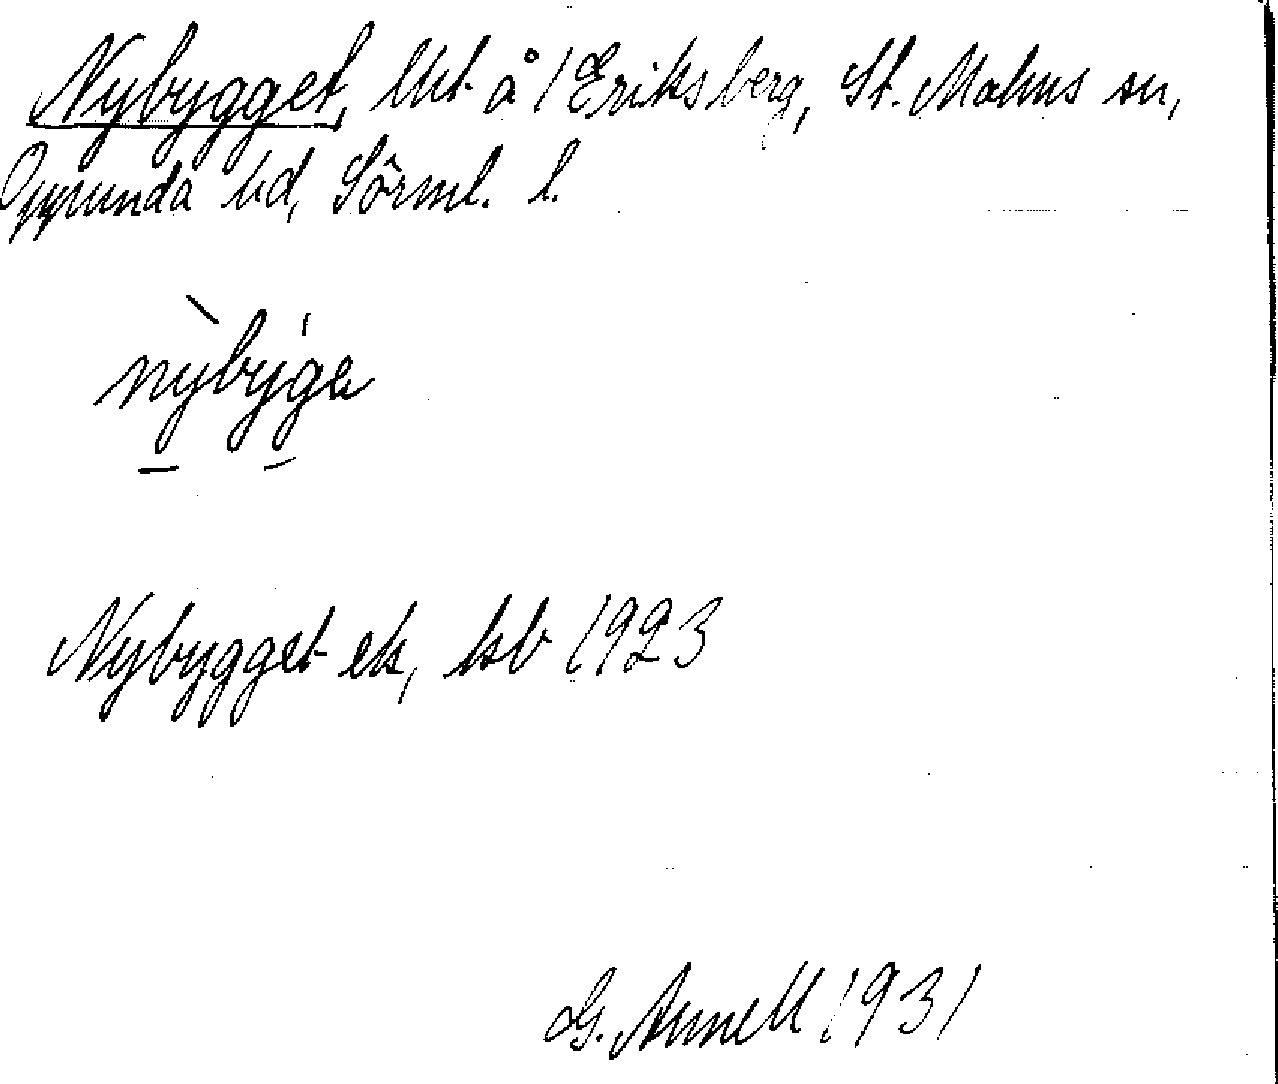 Nybygget, lht å 1 Eriksberg, St. Malms sn,
Oppunda hd, Sörml. l.
nỳby̍ga
Nybygget ek, kb 1923
G. Annell 1931